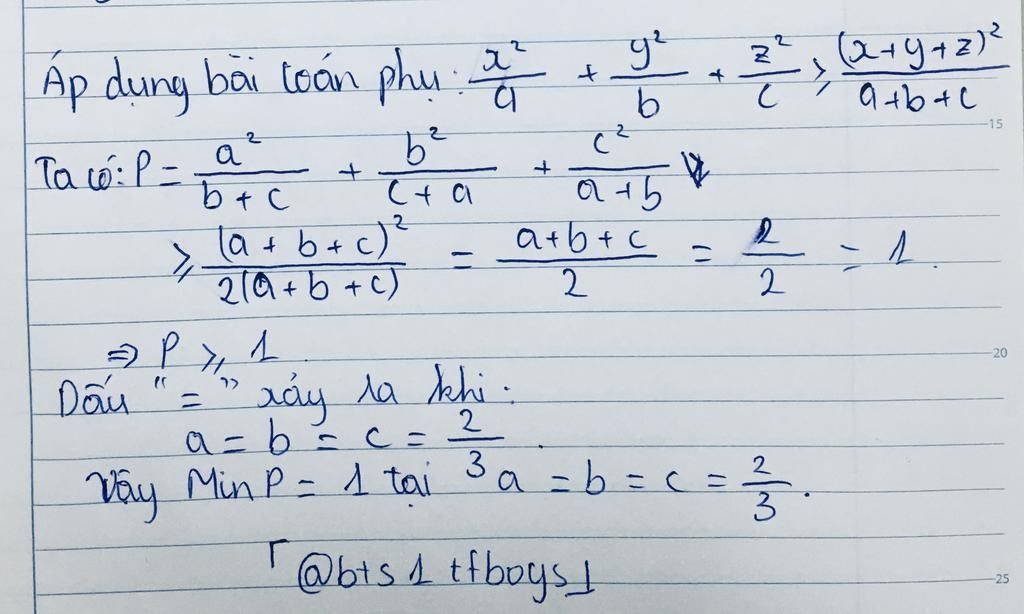 Áp dụng bài toán phụ: x²/a + y²/b + z²/c ≥ (x+y+z)²/(a+b+c)
15
Ta có: P = a²/(b+c) + b²/(c+a) + c²/(a+b)
≥ (a+b+c)²/2(a+b+c) = (a+b+c)/2 = 2/2 = 1.
⇒ P ≥ 1
20
Dấu "=" xảy ra khi:
a = b = c = 2/3.
Vậy Min P = 1 tại a = b = c = 2/3.
@bts1tfboys1
25